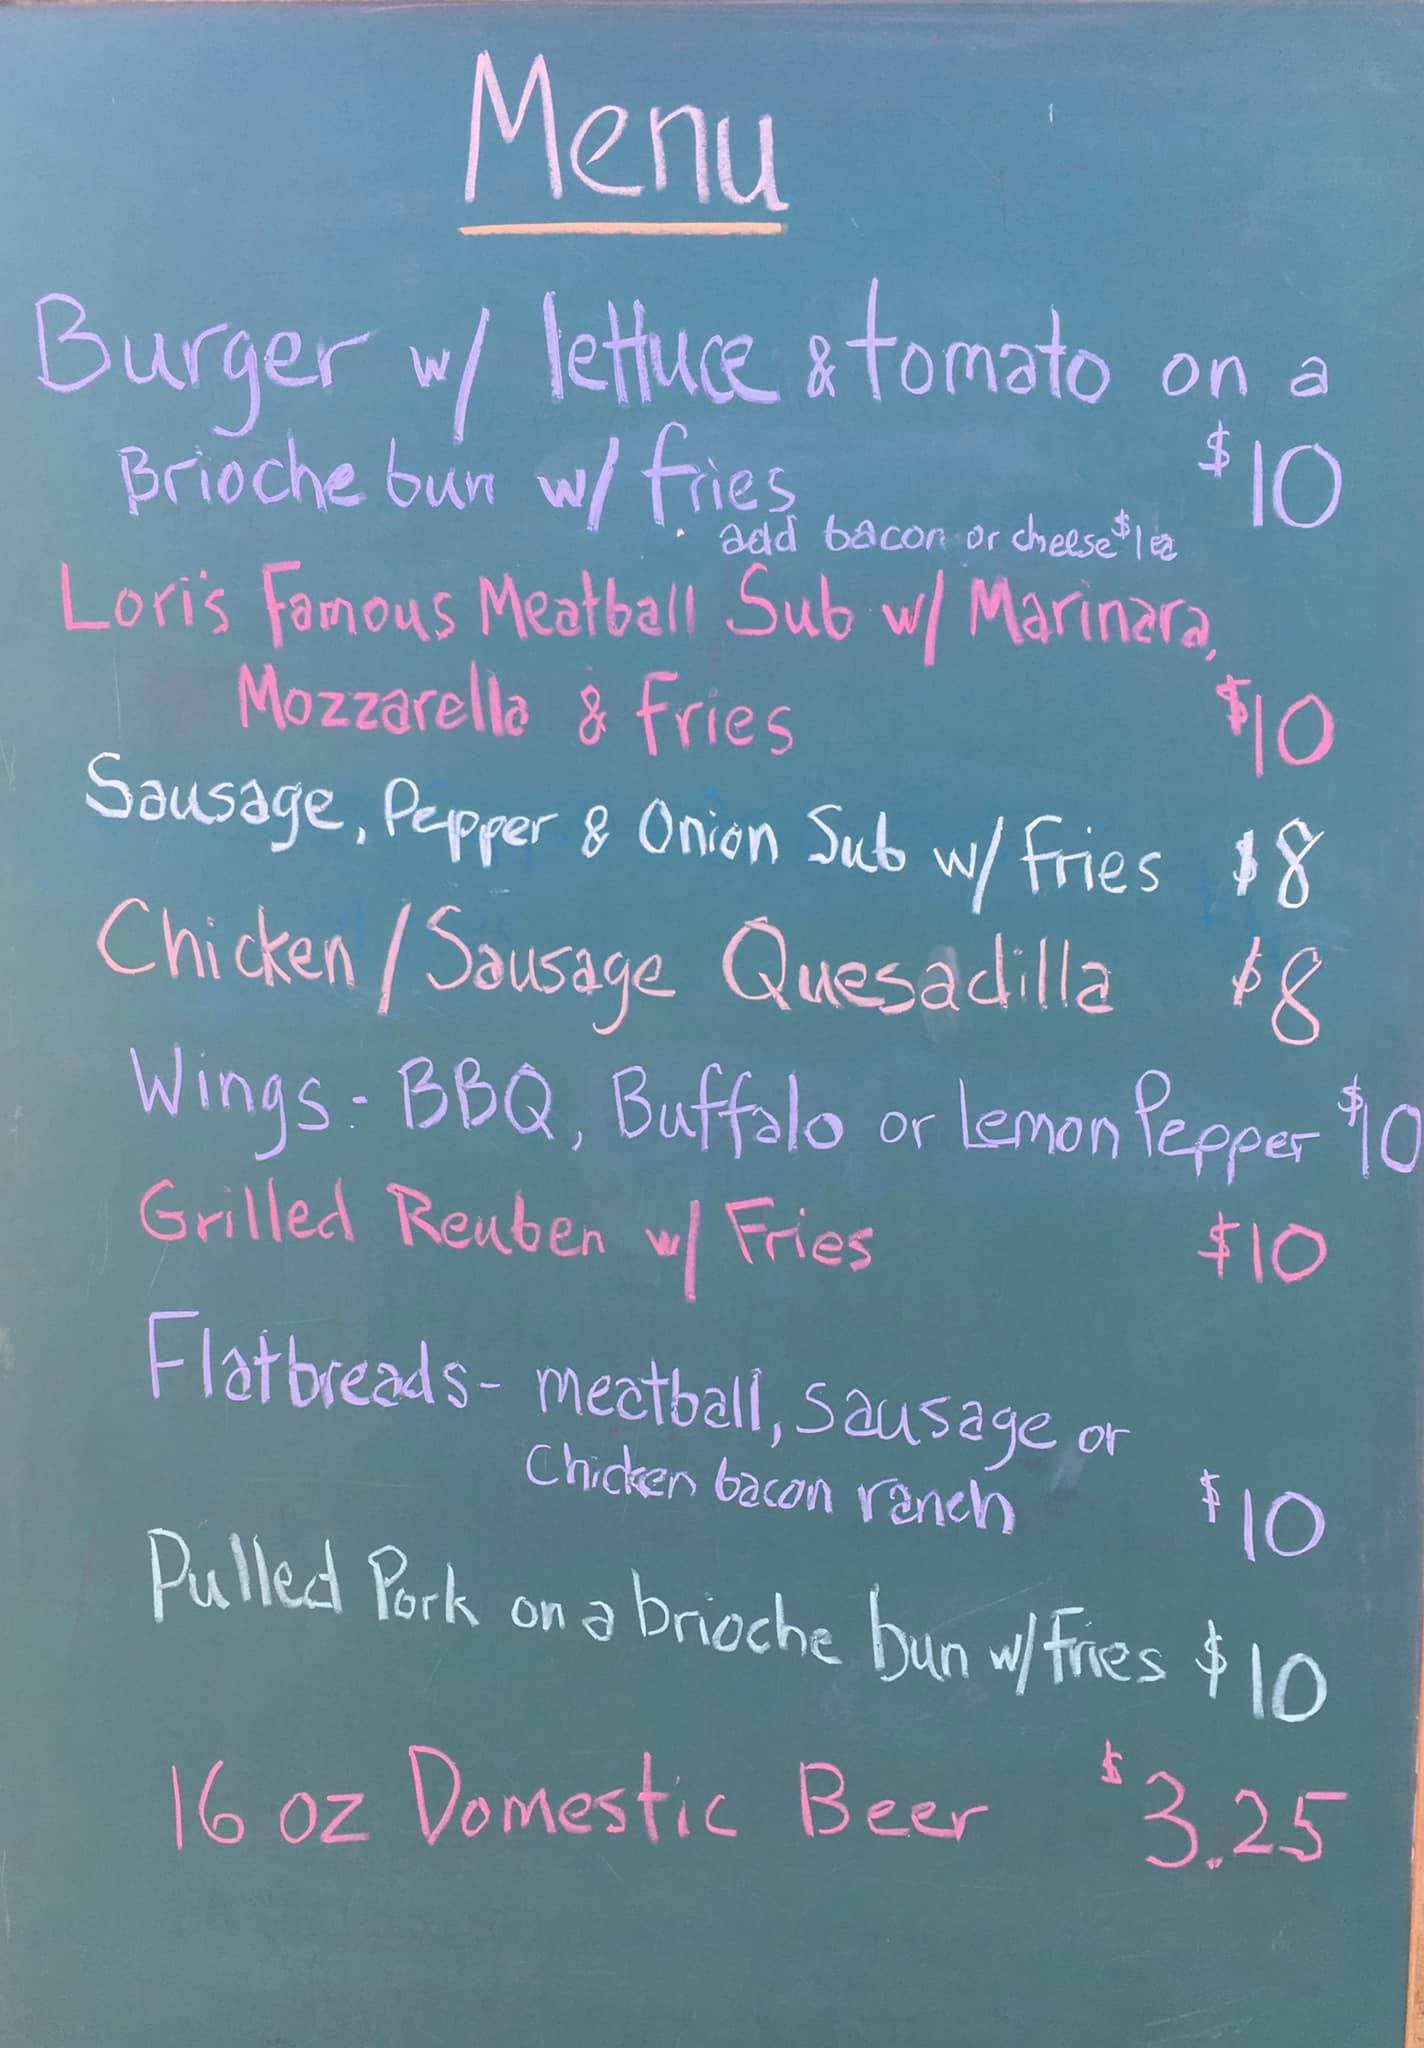 Menu
Burger w/ lettuce & tomato on a
Brioche bun w/ fries $10
add bacon or cheese $1 ea
Lori's Famous Meatball Sub w/ Marinara,
Mozzarella & Fries $10
Sausage, Pepper & Onion Sub w/ Fries $8
Chicken/Sausage Quesadilla $8
Wings - BBQ, Buffalo or Lemon Pepper $10
Grilled Reuben w/ Fries $10
Flatbreads - meatball, sausage or
Chicken bacon ranch $10
Pulled Pork on a brioche bun w/ Fries $10
16 oz Domestic Beer $3.25